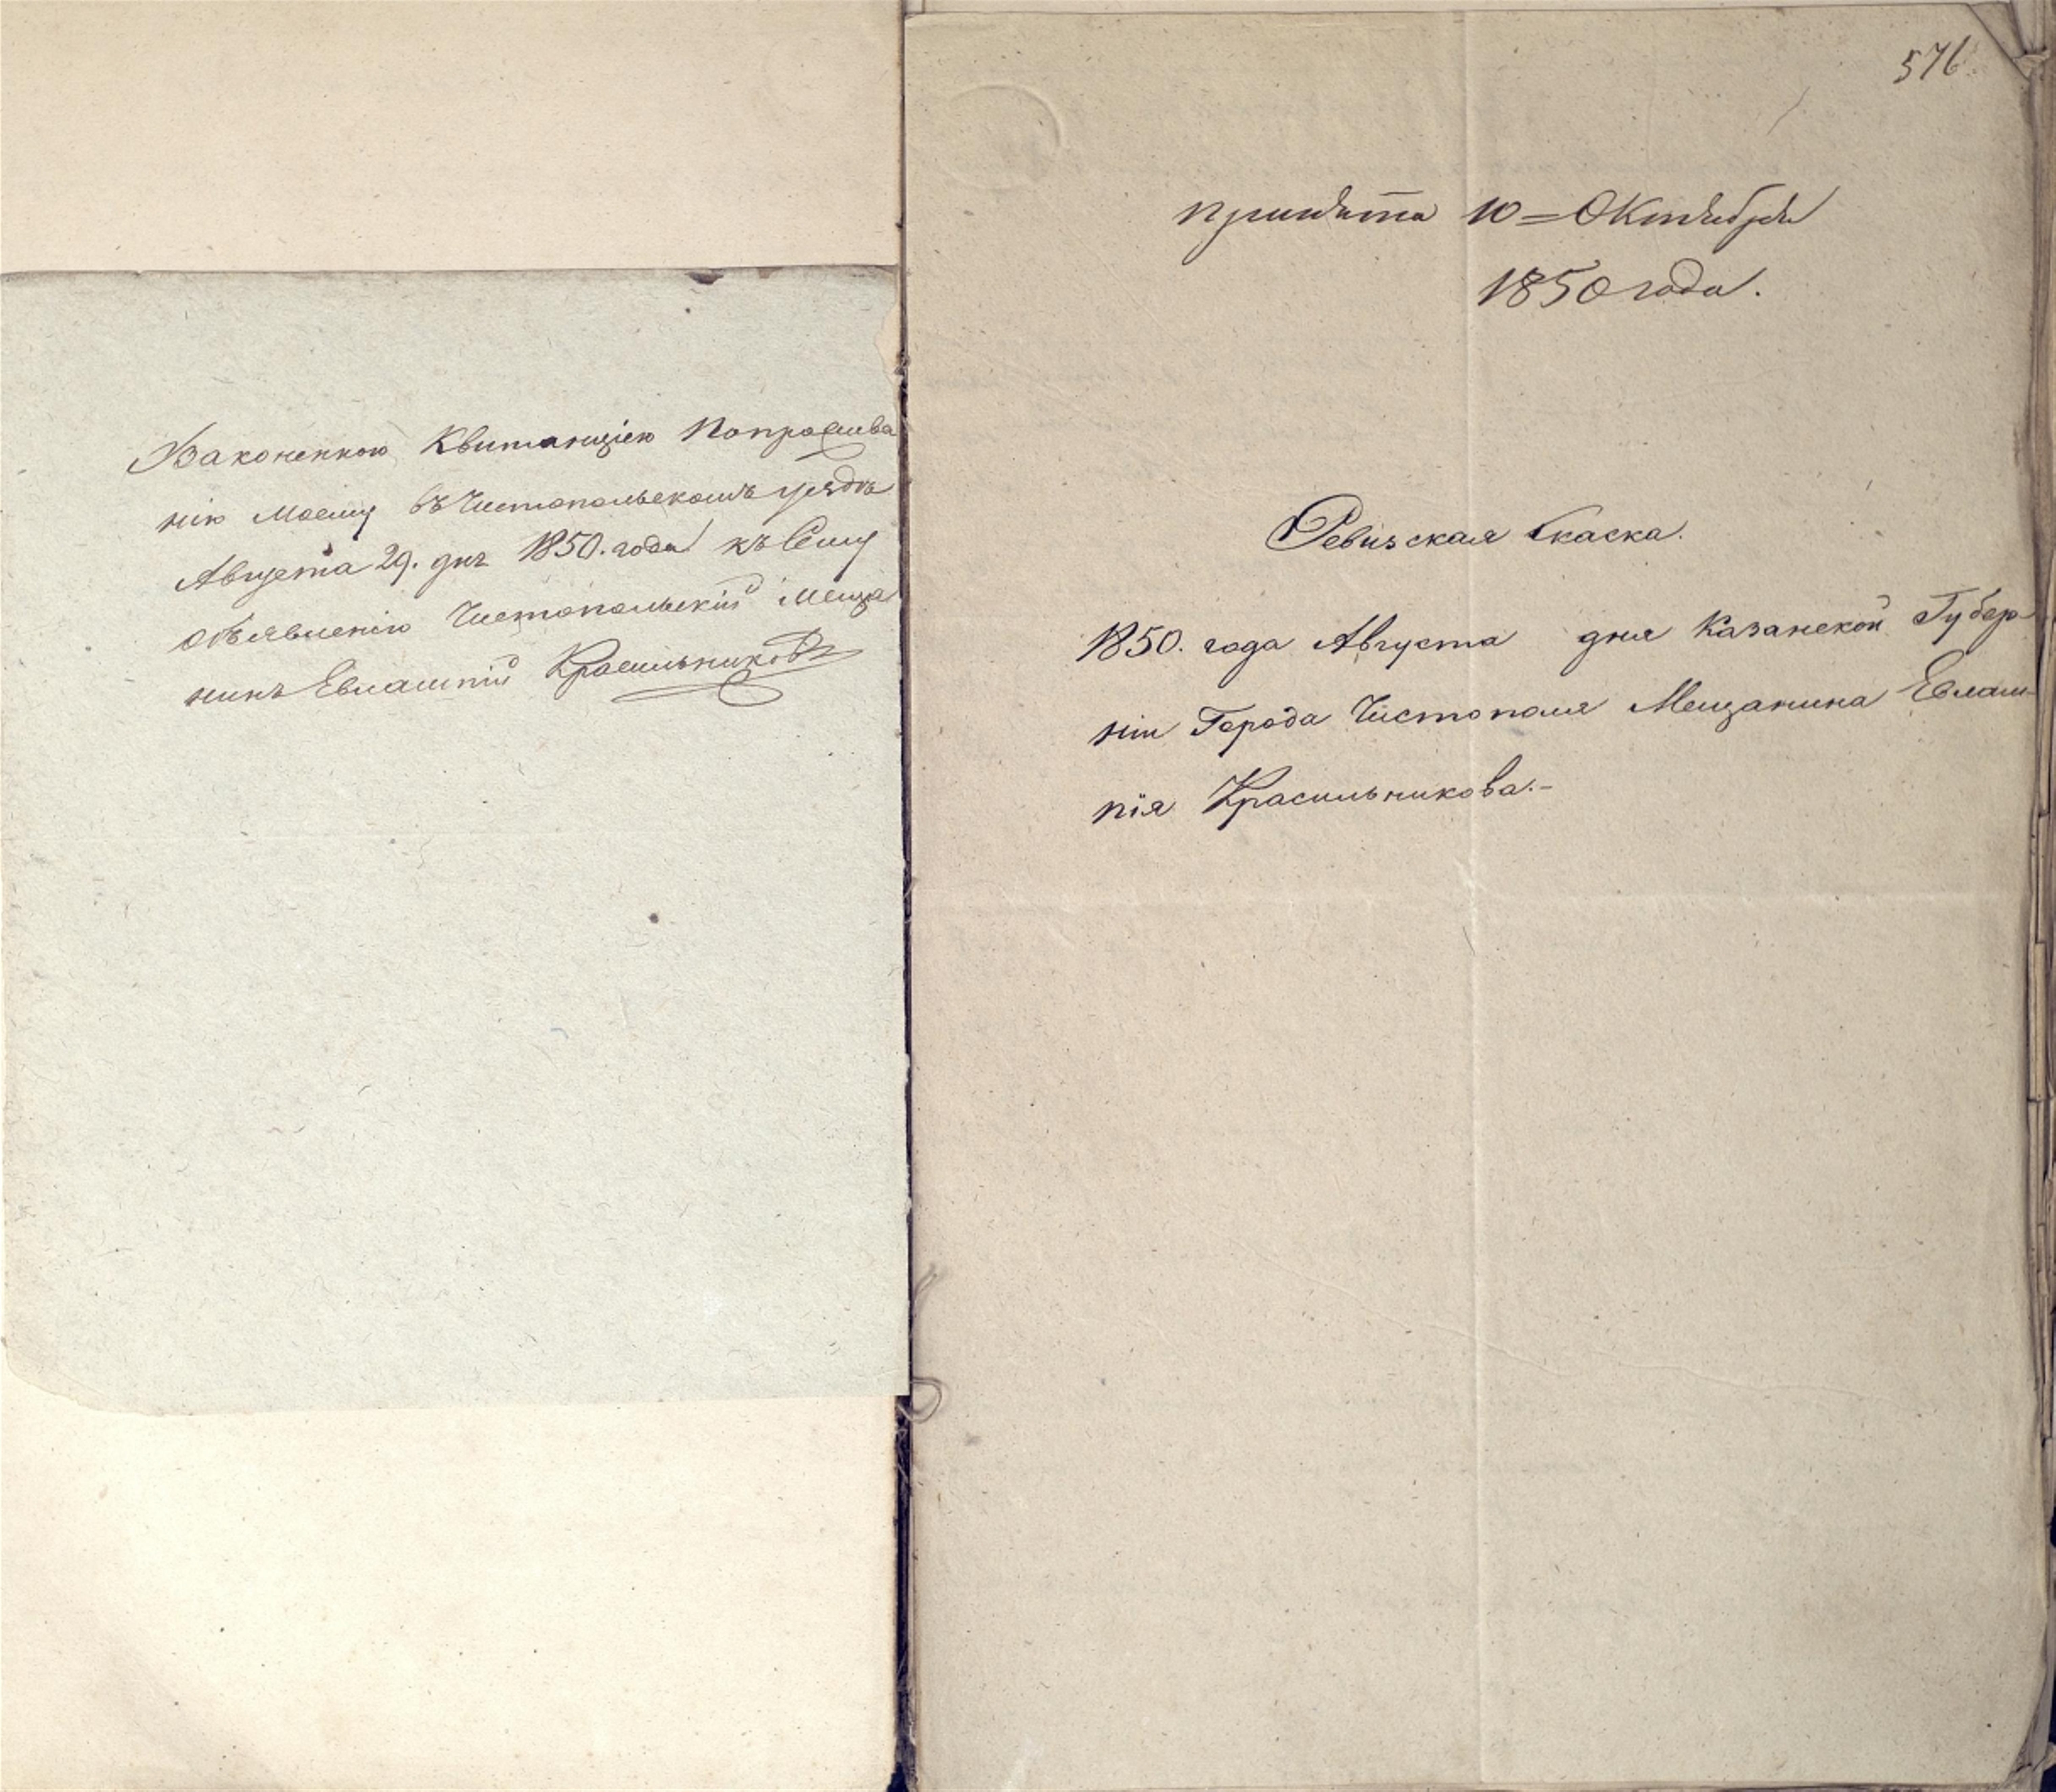 Законенкою Квитанціею Попрашива
нію Моему въ Чистопольскомъ уездѣ
Августа 29. дня 1850. года къ Сему
объявленію Чистопольскій Меща
нинъ Евлампій Красильниковъ
576
принята 10 = Октября
1850 года.
Ревизская Скаска.
1850. года Августа дня Казанской Губер
ніи Города Чистополя Мещанина Евлам-
пія Красильникова.-